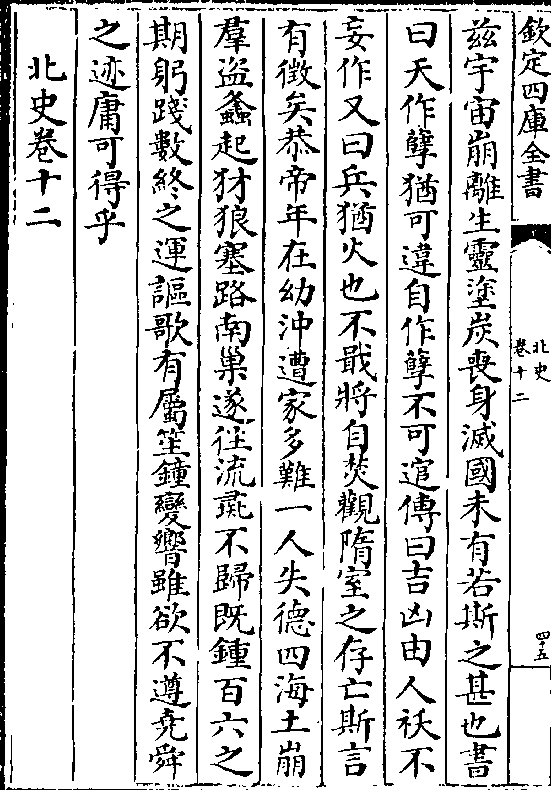 欽定四庫全書
北史
卷十二
四十五
兹宇宙崩離生靈塗炭喪身滅國未有若斯之甚也書
曰天作孽猶可違自作孽不可逭傳曰吉凶由人祅不
妄作又曰兵猶火也不戢將自焚觀隋室之存亡斯言
有徵矣恭帝年在幼沖遭家多難一人失德四海土崩
羣盜蠭起犲狼塞路南巢遂往流彘不歸既鍾百六之
期躬踐數終之運謳歌有屬笙鐘變響雖欲不遵堯舜
之迹庸可得乎
北史卷十二